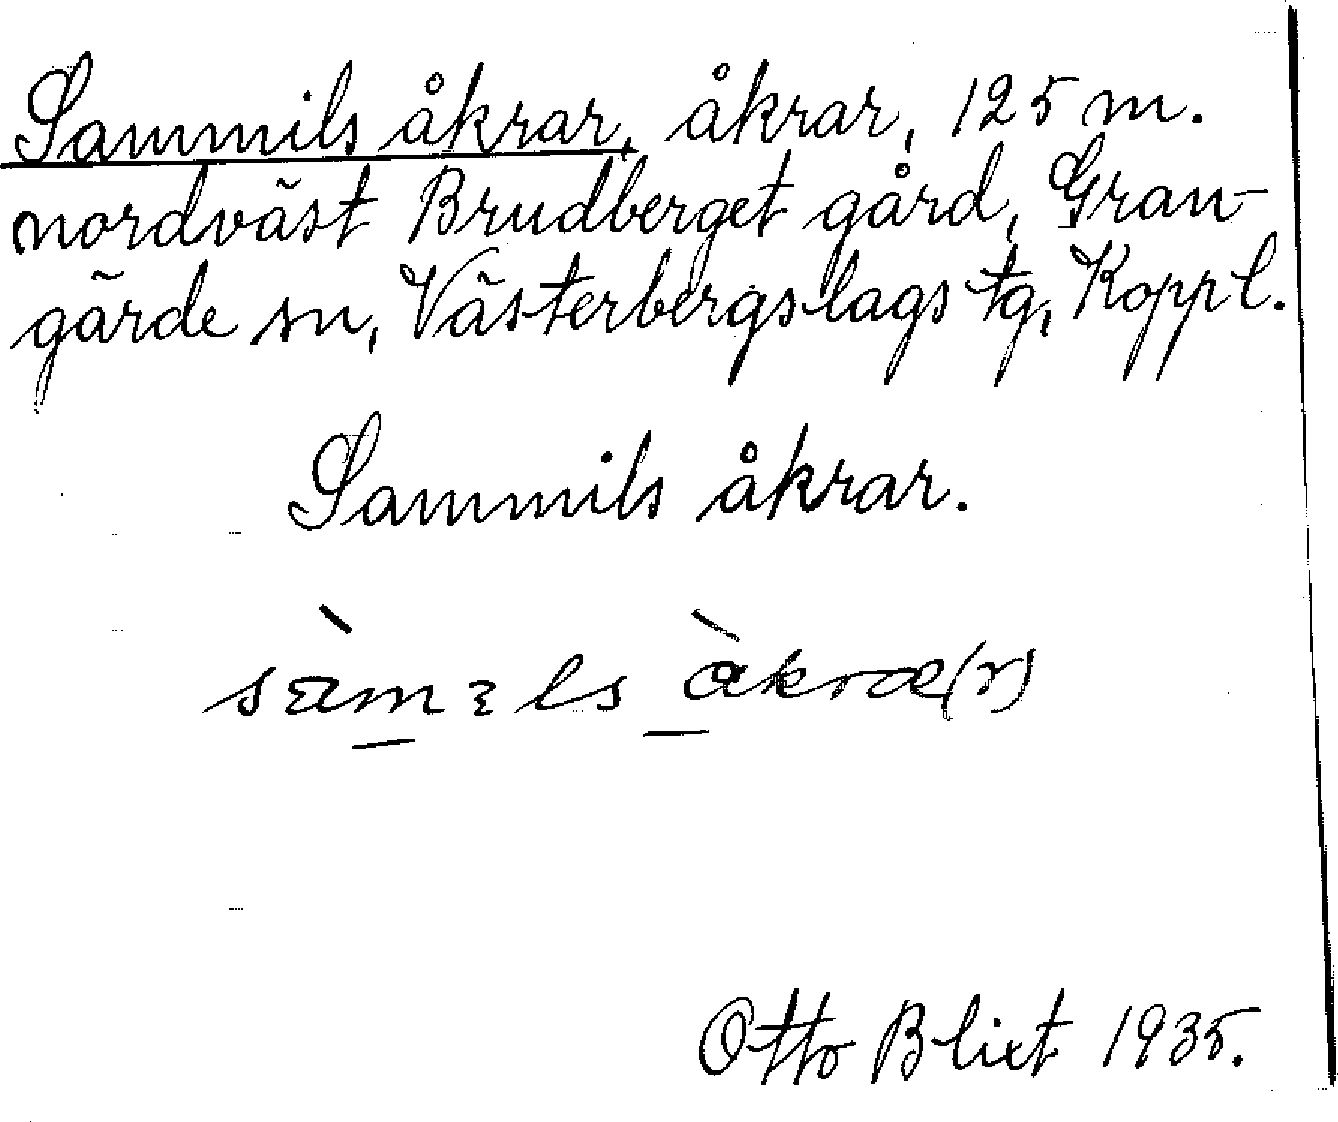 Sammils åkrar, åkrar, 125 m.
nordväst Brudberget gård, Gran-
gärde sn, Västerbergslags tg, Koppl.
Sammils åkrar.
sàmɛls àkra(r)
Otto Blixt 1935.